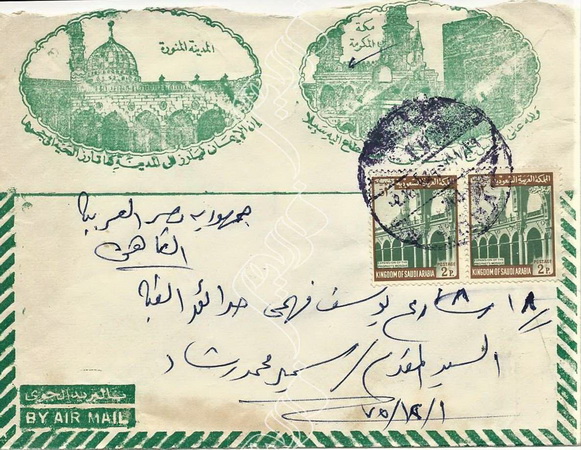 المدينة المنورة
مكة
المكرمة
إن الإيمان ليأرز إلى المدينة كما تأرز الحية إلى جحرها
ولله على
إليه سبيلا
المملكة العربية السعودية
POSTAGE
KINGDOM OF SAUDI ARABIA
2 P.
المملكة العربية السعودية
POSTAGE
KINGDOM OF SAUDI ARABIA
2 P.
جمهورية مصر العربية
القاهرة
شارع يوسف فهمي حدائق القبة
السيد المقدم / سمير محمد رشاد
بالبريد الجوي
BY AIR MAIL